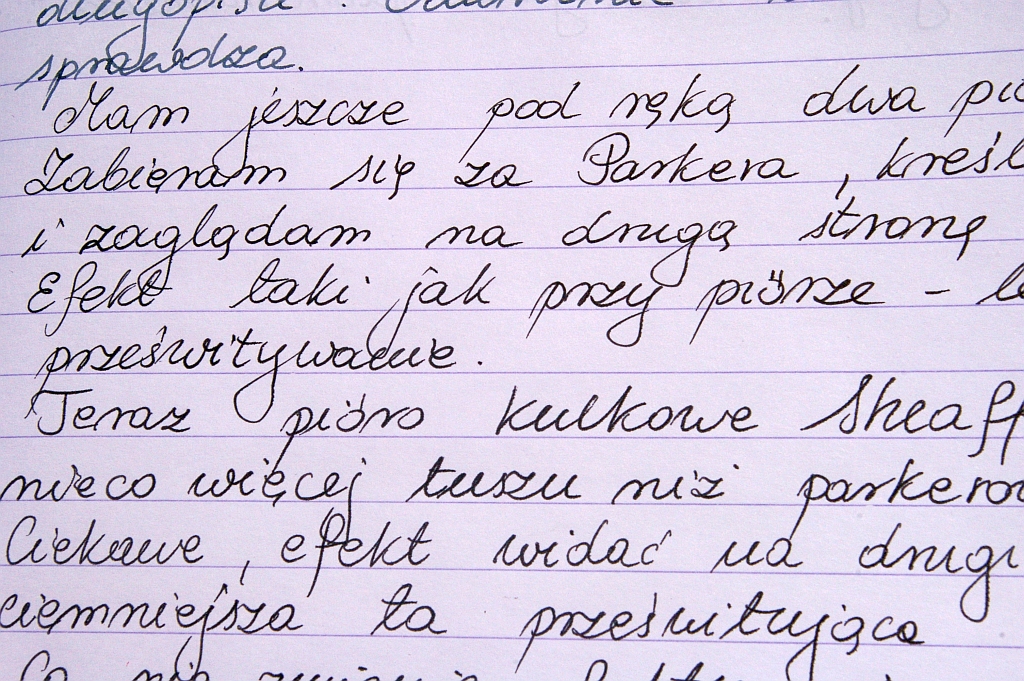 długopisu.
sprawdza.
Mam jeszcze pod ręką dwa pió
Zabieram się za Parkera, kreśl
i zaglądam na drugą stronę
Efekt taki jak przy piórze - le
prześwitywanie.
Teraz pióro kulkowe Sheaff
nieco więcej tuszu niż parkerow
Ciekawe, efekt widać na drugi
ciemniejsza ta prześwitująca
Co nie